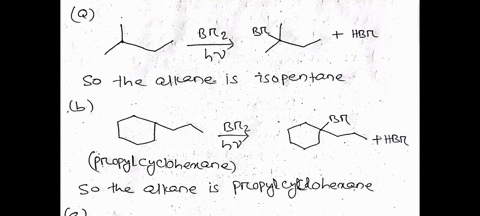 (a)
BR2
hν
BR
+ HBR
So the alkane is isopentane
(b)
BR2
hν
BR
+HBR
(propylcyclohexane)
So the alkane is propylcycldohexane